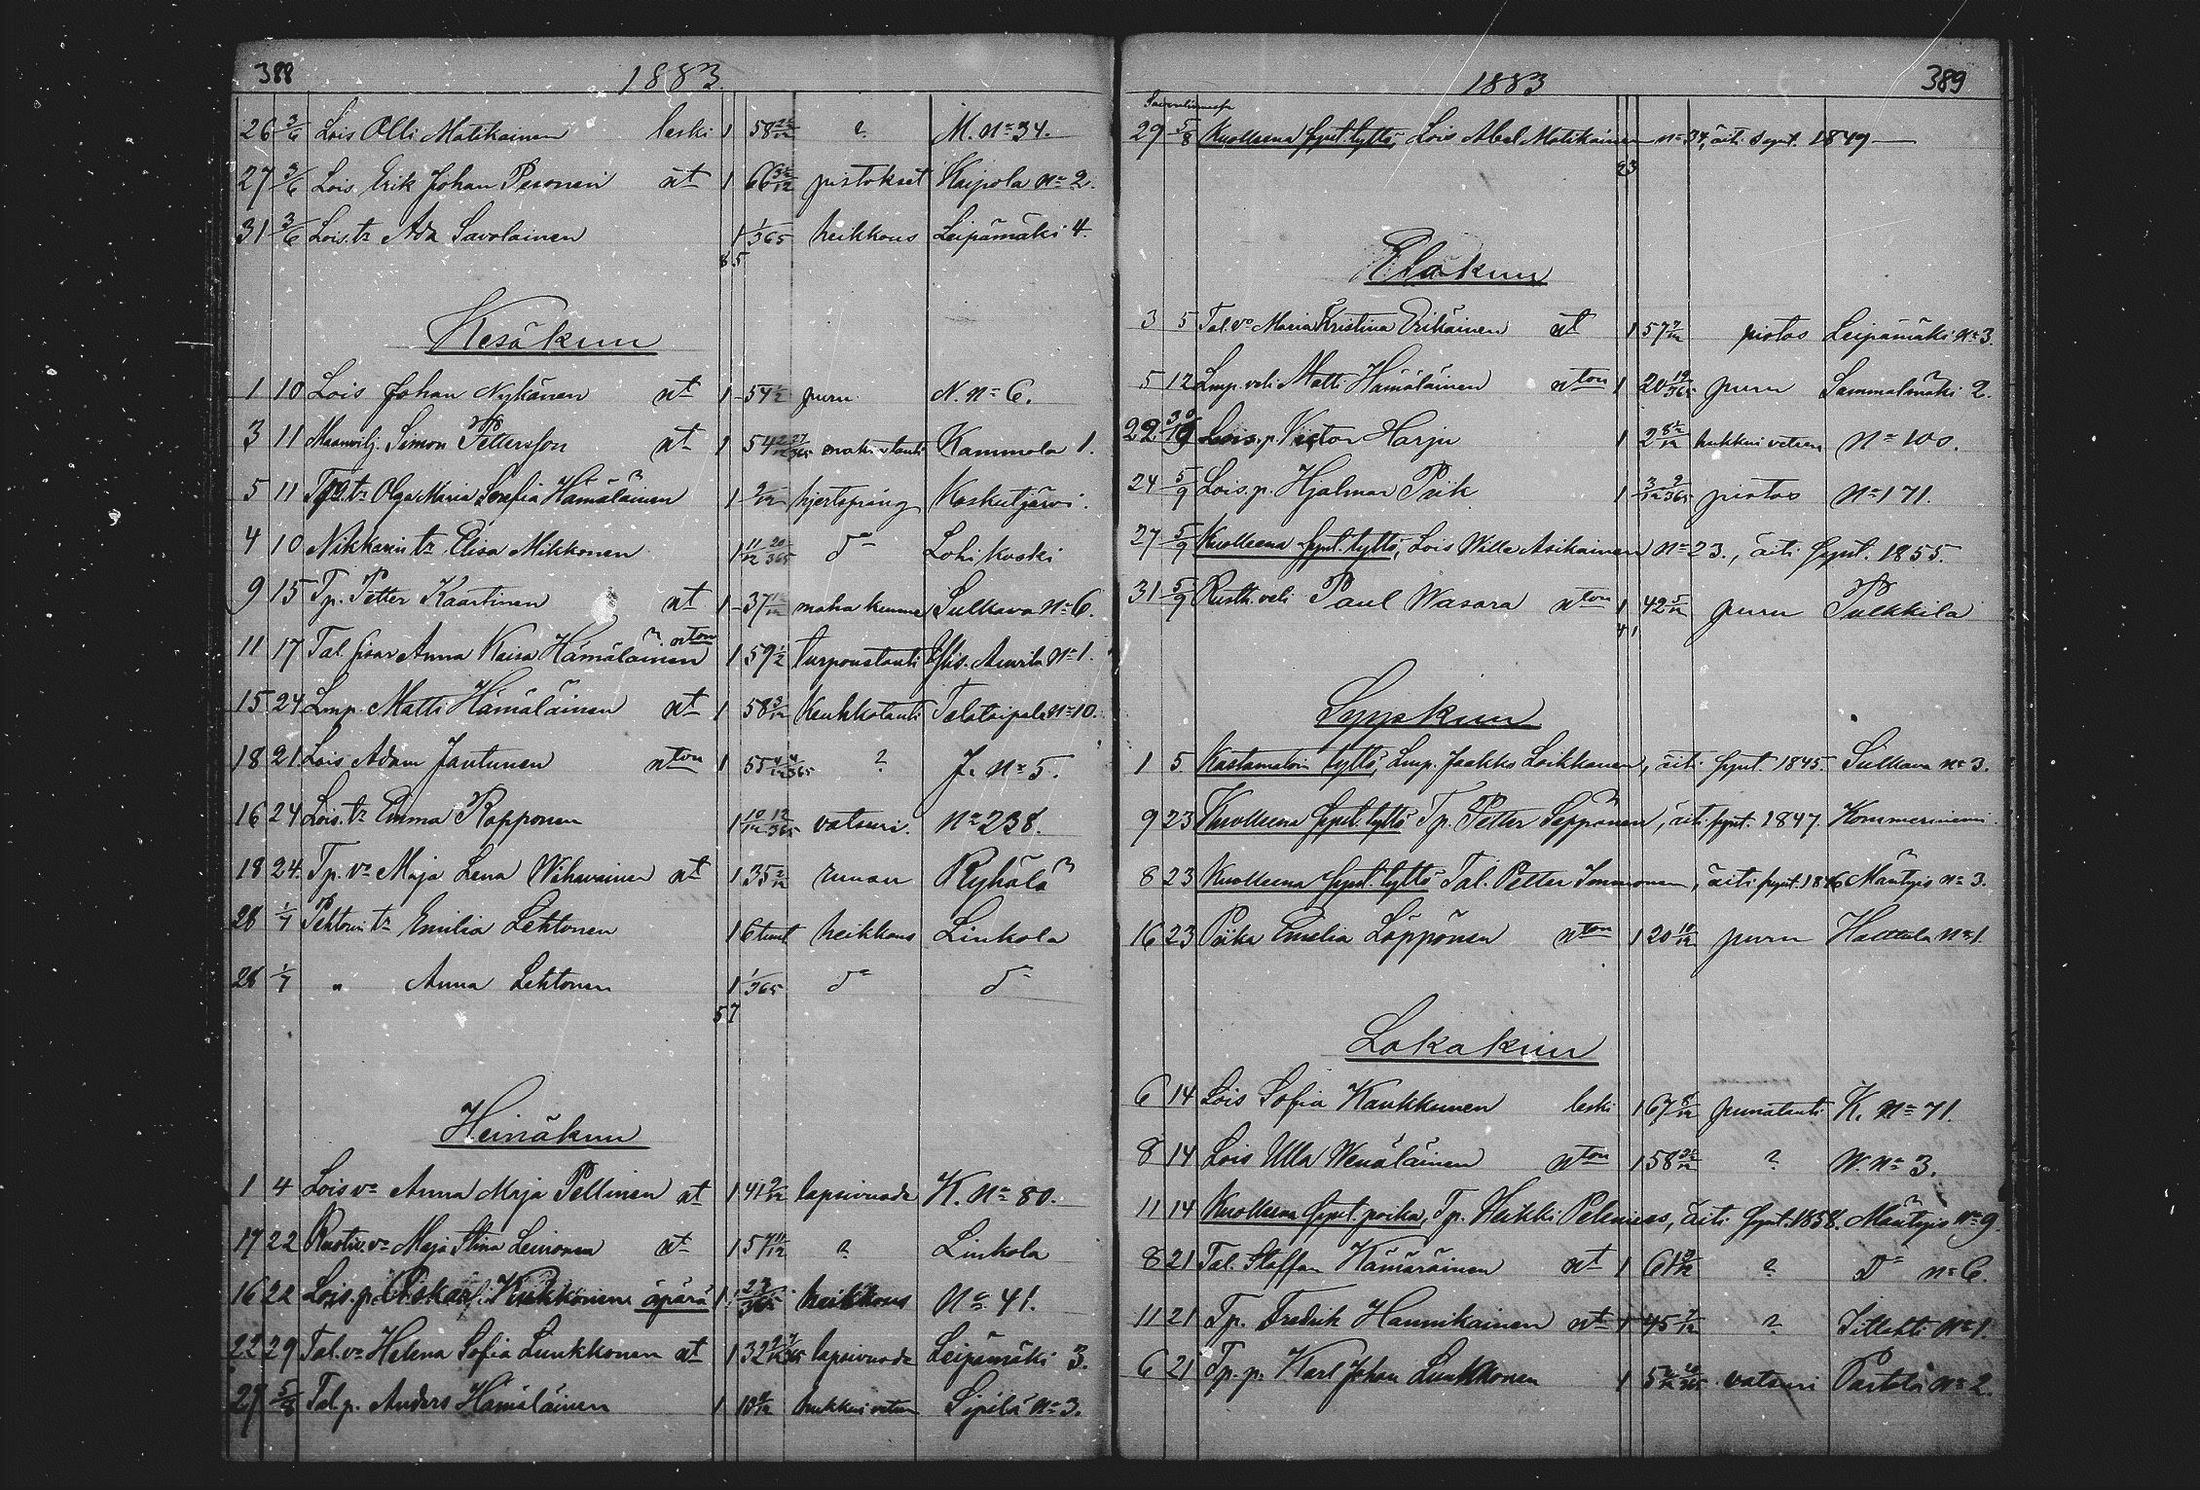 388
1883.
26 3/6 Lois Olli Matikainen leski 1 58 ? M. No 34.
27 3/6 Lois. Erik Johan Pesonen nt 1 66 pistokset Kaipola No 2.
31 3/6 Lois. tr Ada Savolainen 1 1/365 heikkous Leipämäki 4.
85
Kesäkuu
1 10 Lois Johan Nykänen nt 1 54 1/2 puru N. No 6.
3 11 Maanvilj. Simon Pettersson nt 1 54 Kammola 1.
5 11 tr Olga Maria Serafia Hämäläinen 1 hjertsprång Koskutjärvi.
4 10 Nikkarin tr Elisa Mikkonen 1 11/12 20/365 do Lohikoski
9 15 Tp. Petter Kaartinen nt 1 37 Sulkava No 6.
11 17 Tal. Anna Kaisa Hämäläinen nton 1 59 1/2 turpoustauti No 1.
15 24 Lmp. Matti Hämäläinen nt 1 58 3/12 Keuhkotauti Talataipale No 10.
18 21. Lois Adam Jantunen nton 1 55 ? J. No 5.
16 24 Lois. tr Emma Ropponen 1 10/12 12/365 vatsuri. No 238.
18 24. Tp. vo Maja Lena Wihavainen nt 1 35 2/12 ruuan Ryhälä
28 1/7 Pehtorin tr Emilia Lehtonen 1 6 tunt heikkous Linkola
28 1/7 " Anna Lehtonen 1 1/365 do do
57
Heinäkuu
1 4 Lois vo Anna Maja Pellinen nt 1 41 9/12 lapsivuode K. No 80.
17 22 Rustin. vo Maja Stina Leinonen nt 1 57 11/12 ? Linkola
16 22 Lois. p. Oskar Kukkonen äpärä 1 23/365 heikkous No 41.
22 29 Tal. vo Helena Sofia Luukkonen nt 1 32 lapsivuode Leipämäki 3.
29 5/8 Tal. p. Anders Hämäläinen 1 10 hukkui veteen Sipilä No 3.
1883
389
29 5/8 Kuolleena synt. tyttö, Lois Abel Matikainen No 34, äiti synt. 1849
23
Eläkuu
3 5 Tal. vo Maria Kristina Eräkäinen nt 1 57 pistos Leipämäki No 3.
5 12 Lmp. veli Matti Hämäläinen nton 1 20 19/365 puru Sammalmäki 2.
22 Lois. p. Victor Harju 1 2 hukkui veteen No 100.
24 5/9 Lois. p. Hjalmar Piik 1 3/12 9/365 pistos No 171.
27 5/9 Kuolleena synt. tyttö, Lois Wille Asikainen No 23., äiti synt. 1855.
31 5/9 Rusth. veli Paul Wasara nton 1 42 5/12 puru Pulkkila
41
Syyskuu
1 5. Kastamatoin tyttö, Lmp. Jaakko Loikkanen, äiti synt. 1845. Sulkava No 3.
9 23 Kuolleena synt. tyttö Tp. Petter Seppänen, äiti synt. 1847. Kommerniemi
8 23 Kuolleena synt. tyttö Tal. Petter Immonen, äiti synt. 1846 Mäntyis No 3.
16 23 Piika Emelia Löppönen nton 1 20 10/12 puru Halttula No 1.
Lokakuu
6 14 Lois Sofia Kaukkunen leski 1 67 punatauti K. No 71.
8 14 Lois Ulla Wenäläinen nton 1 58 ? W. No 3.
11 14 Kuolleena synt. poika, Tp. Heikki äiti synt. 1858. Mäntyis No 9.
8 21 Tal. Staffan Kämäräinen nt 1 61 ? Do No 6.
11 21 Tp. Fredrik Hannikainen nt 1 45 7/12 ? Tillahti No 1.
6 21 Tp. p. Karl Johan Luukkonen 1 5 vatsuri Partala No 2.